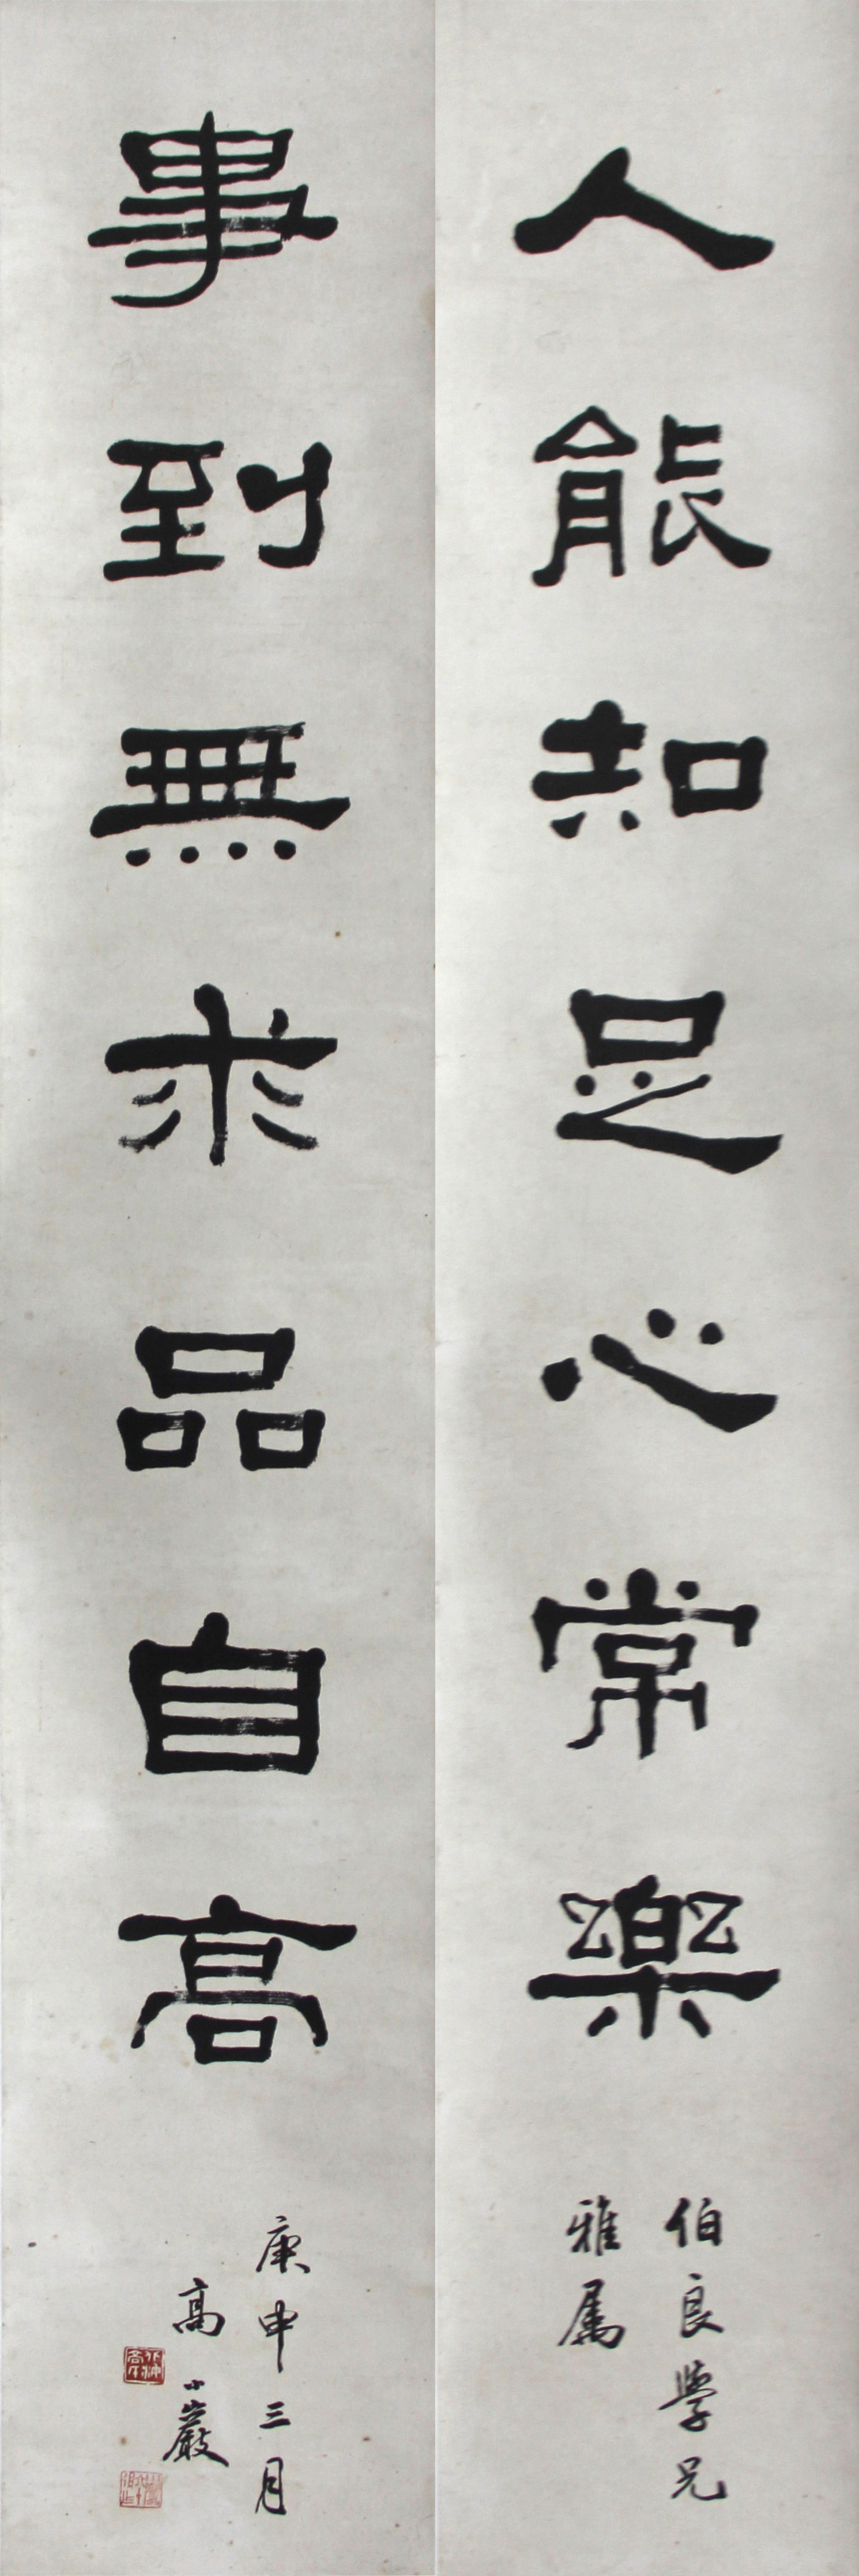 人能知足心常樂
伯良學兄
雅属
事到無求品自高
庚申三月
高小巖